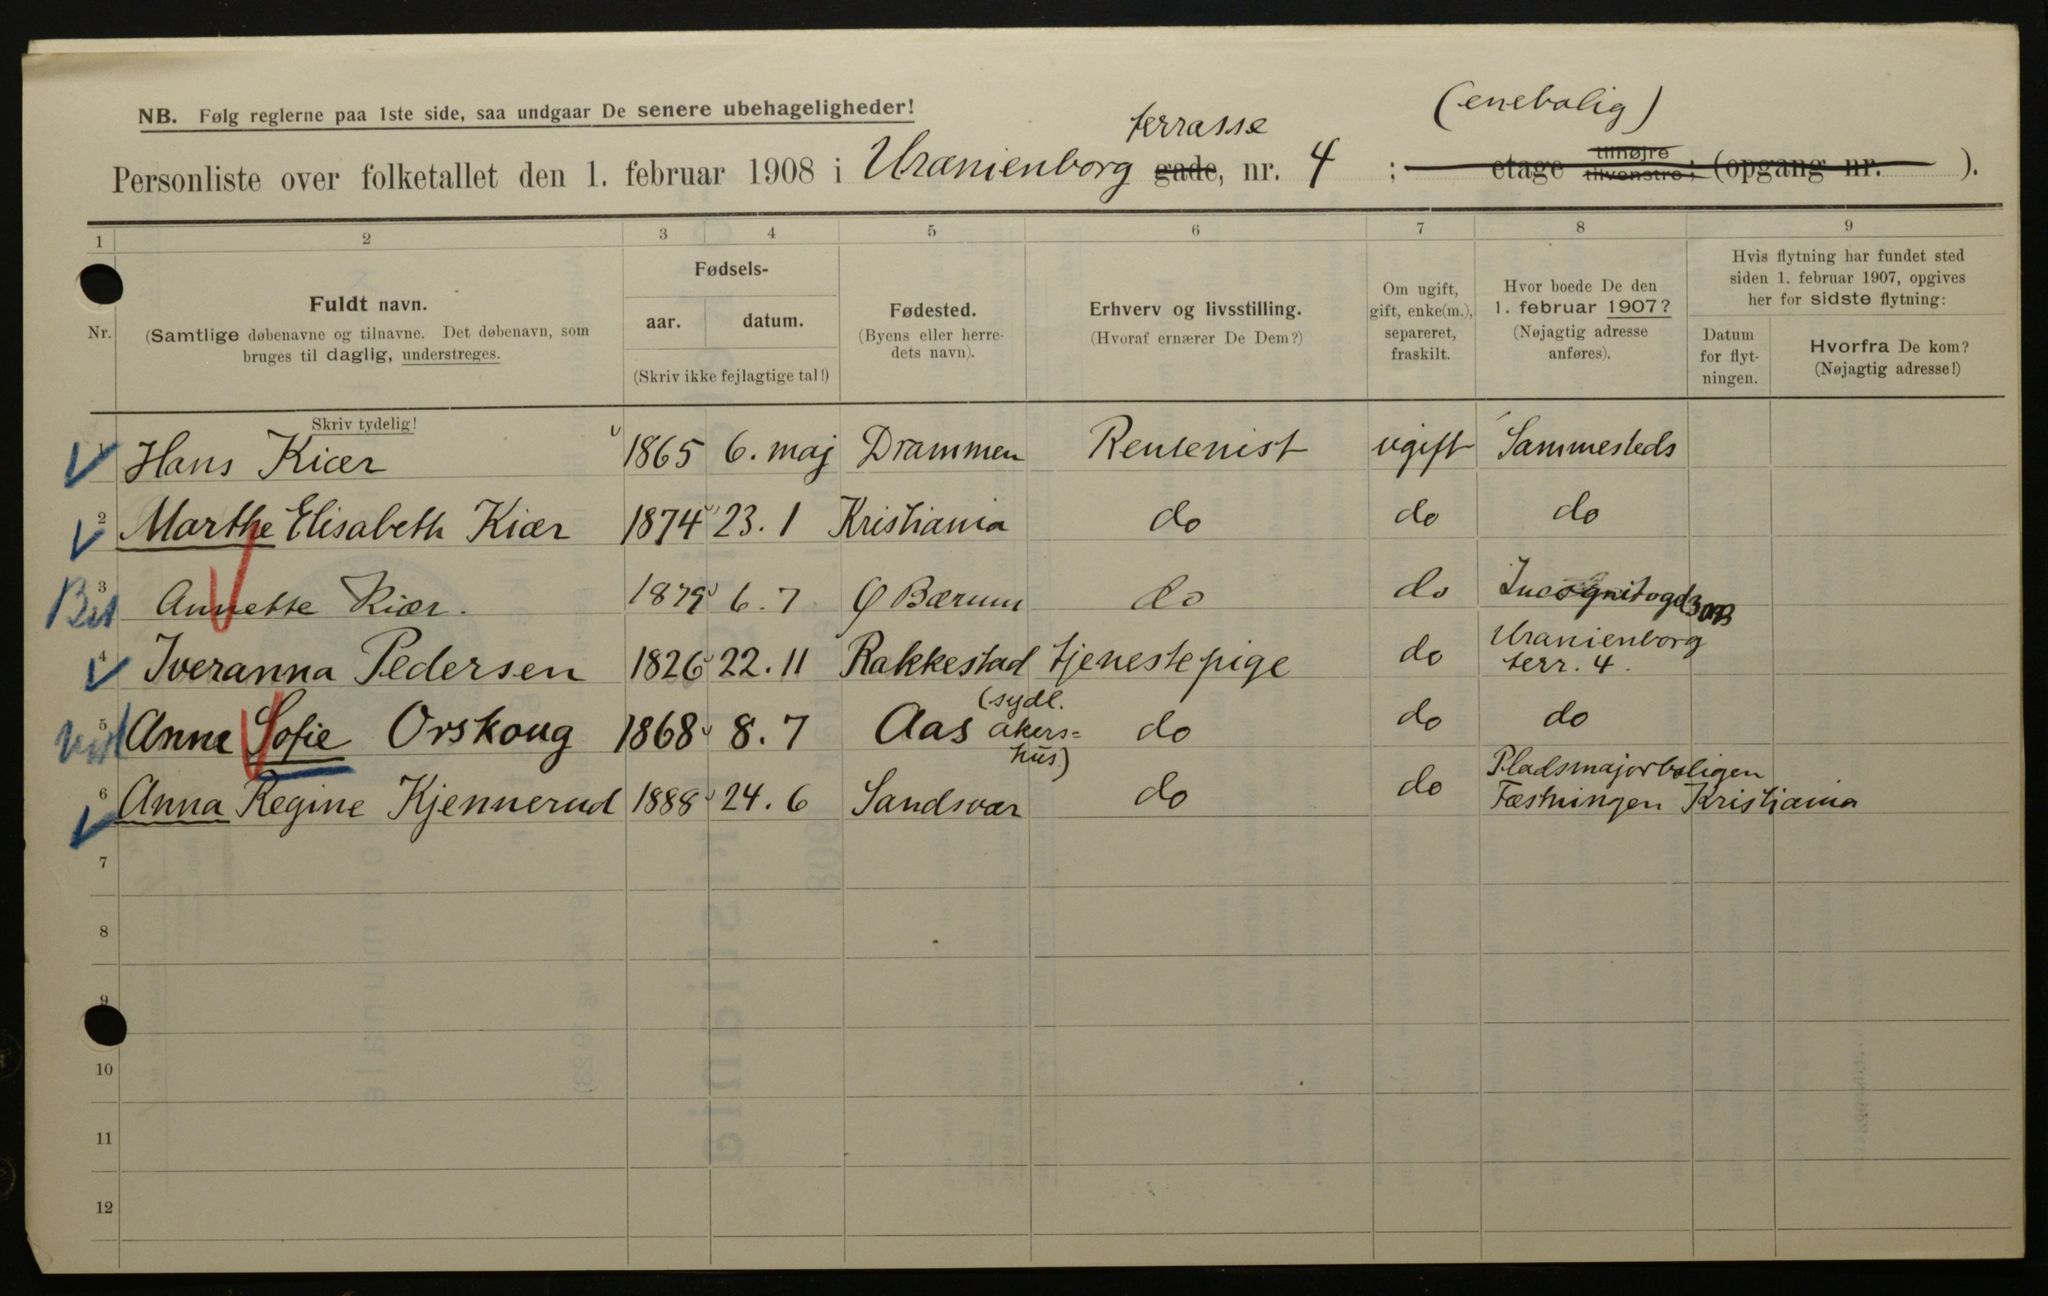 NB. Følg reglerne paa 1ste side, saa undgaar De senere ubehageligheder!
(enebolig)
terrasse
Personliste over folketallet den 1. februar 1908 i Uranienborg gade, nr. 4 ; etage tilhøjre tilvenstre; (opgang nr. ).
1 2 3 4 5 6 7 8 9
Nr.
Fuldt navn.
(Samtlige døbenavne og tilnavne. Det døbenavn, som
bruges til daglig, understreges.
Fødsels-
aar. datum.
(Skriv ikke fejlagtige tal!)
Fødested.
(Byens eller herre-
dets navn).
Erhverv og livsstilling.
(Hvoraf ernærer De Dem?)
Om ugift,
gift, enke(m.),
separeret,
fraskilt.
Hvor boede De den
1. februar 1907?
(Nøjagtig adresse
anføres).
Hvis flytning har fundet sted
siden 1. februar 1907, opgives
her for sidste flytning:
Datum
for flyt-
ningen.
Hvorfra De kom?
(Nøjagtig adresse!)
Skriv tydelig!
1 Hans Kiær 1865 6. maj Drammen Rentenist ugift Sammesteds
2 Marthe Elisabeth Kiær 1874 23. 1 Kristiania do do do
3 Annette Kiær. 1879 6. 7 Ø Bærum do do Incognitogd
4 Iveranna Pedersen 1826 22. 11 Rakkestad tjenestepige do Uranienborg
terr. 4.
5 Anne Sofie Orskoug 1868 8. 7 Aas (sydl.
akers=
hus) do do do
6 Anna Regine Kjennerud 1888 24. 6 Sandsvær do do Pladsmajorboligen
Fæstningen Kristiania
7
8
9
10
11
12